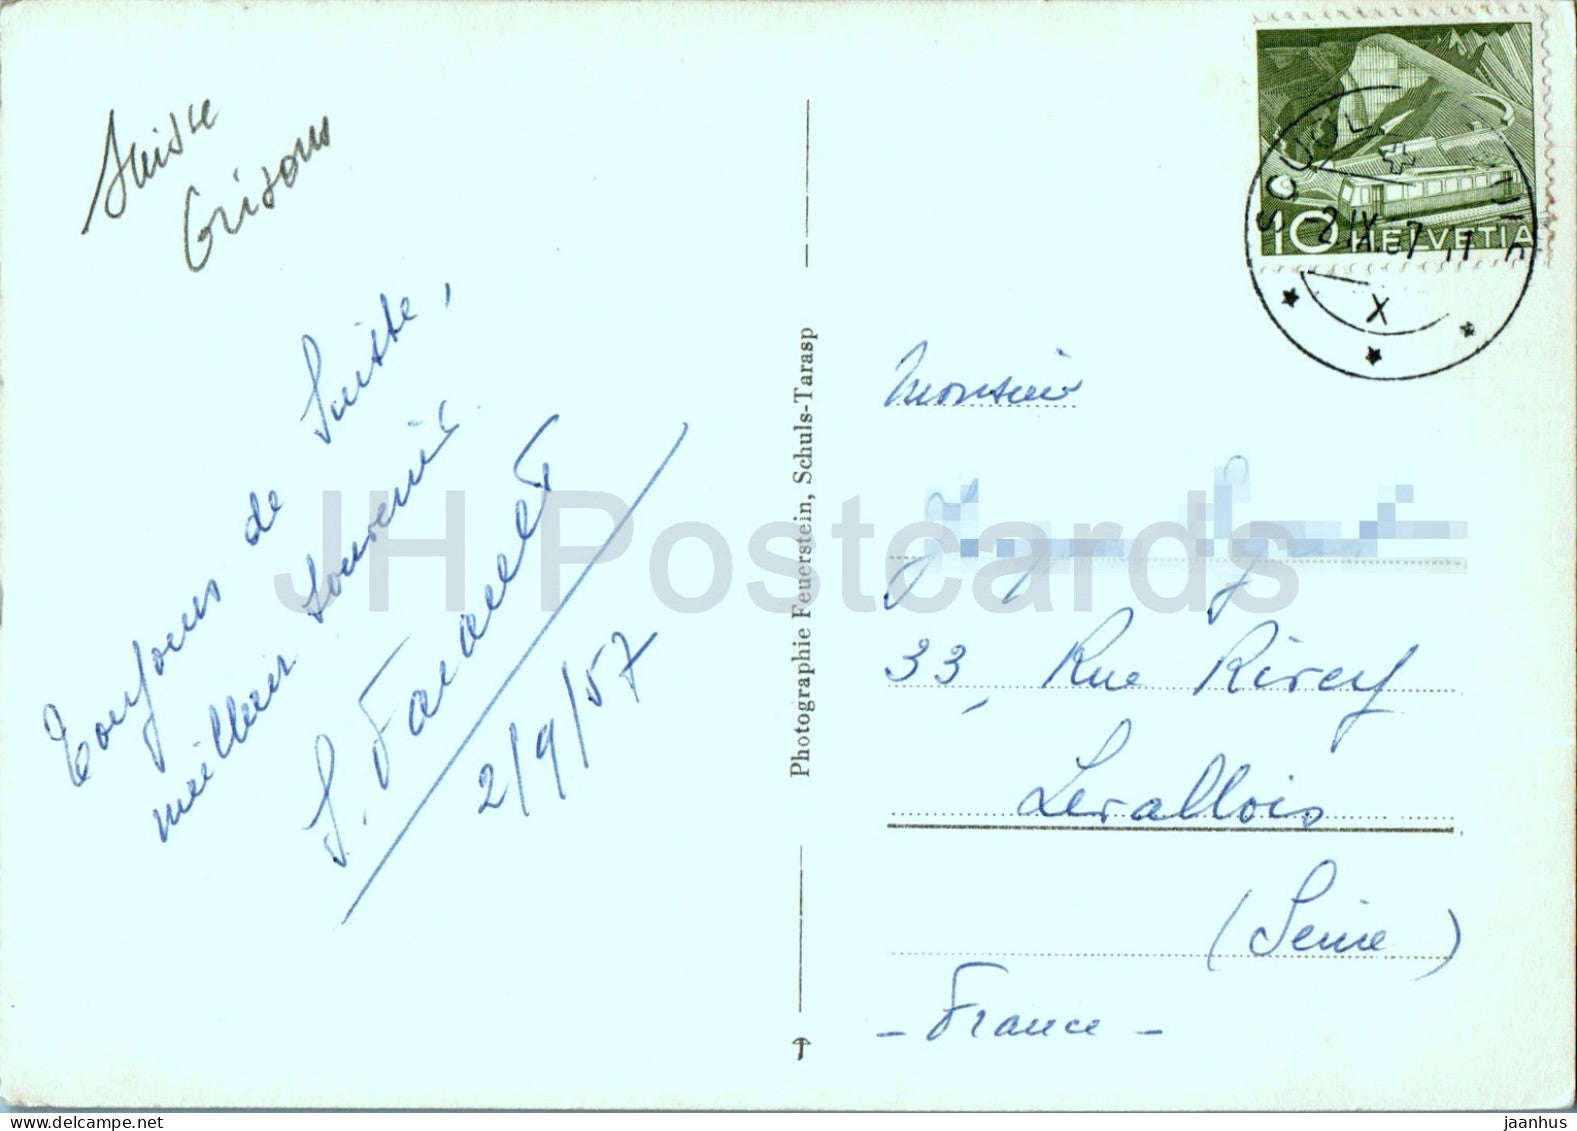 Suisse
Grisons
Toujours de Suisse,
meilleur souvenir
2/9/57
Photographie Feuerstein, Schuls-Tarasp
10 HELVETIA
SCUOL
2.IX.57
X
Monsieur
33, Rue Rivay
Levallois
(Seine)
- France -
JH Postcards
jaanhus